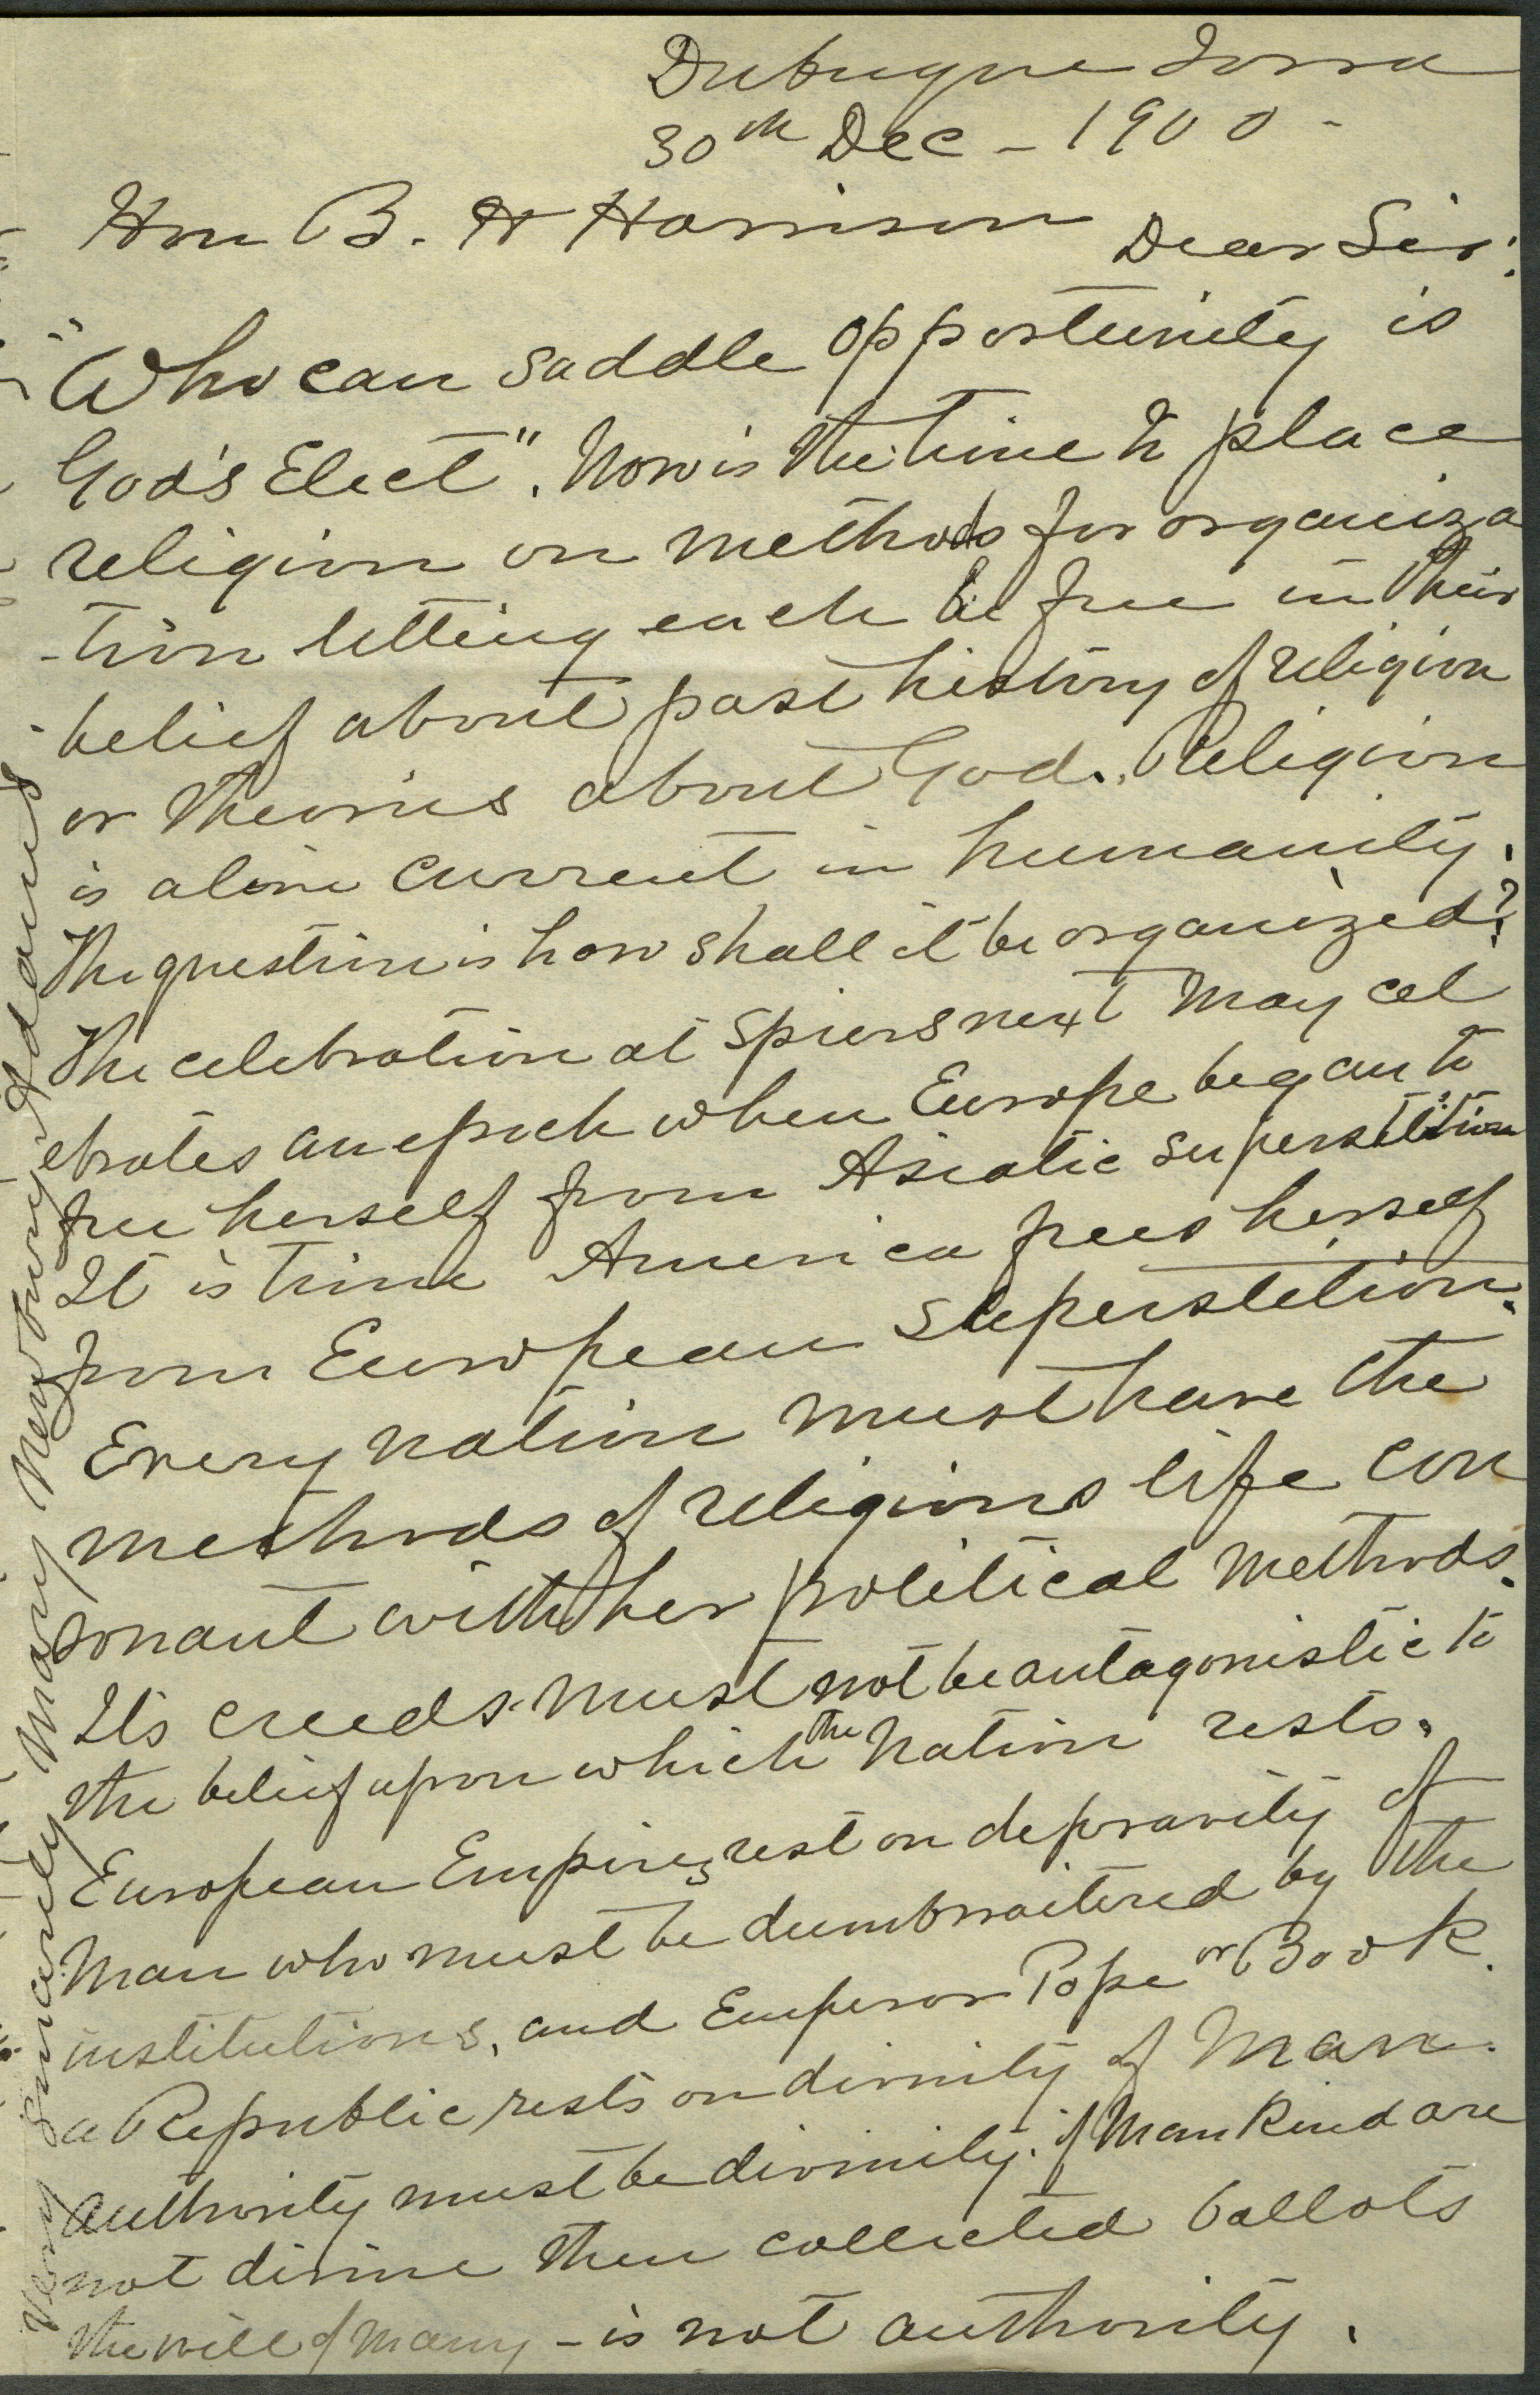 Dubuque Iowa
30th Dec - 1900 -
Hon B. H Harrison Dear Sir:
"Who can saddle opportunity is
God's Elect". Now is the time to place
religion on methods for organiza
-tion letting each be free in their
belief about past history of religion
or theories about God. Religion
is alone current in humanity.
The question is how shall it be organized?
The celebration at Spiers next May cel
ebrates an epoch when Europe began to
free herself from Asiatic superstition
It is time America frees herself
from European superstition.
Every nation must have the
methods of religious life con
sonant with her political methods.
Its creeds must not be antagonistic to
the belief upon which the Nation rests.
European Empires rest on depravity of
Man who must be dumbwaitered by the
institutions, and Emperor Pope or Book.
a Republic rests on divinity of Man.
Authority must be divinity. if Mankind are
not divine then collected ballots
the will of many - is not authority.
Very sincerely Mary Newbury Adams